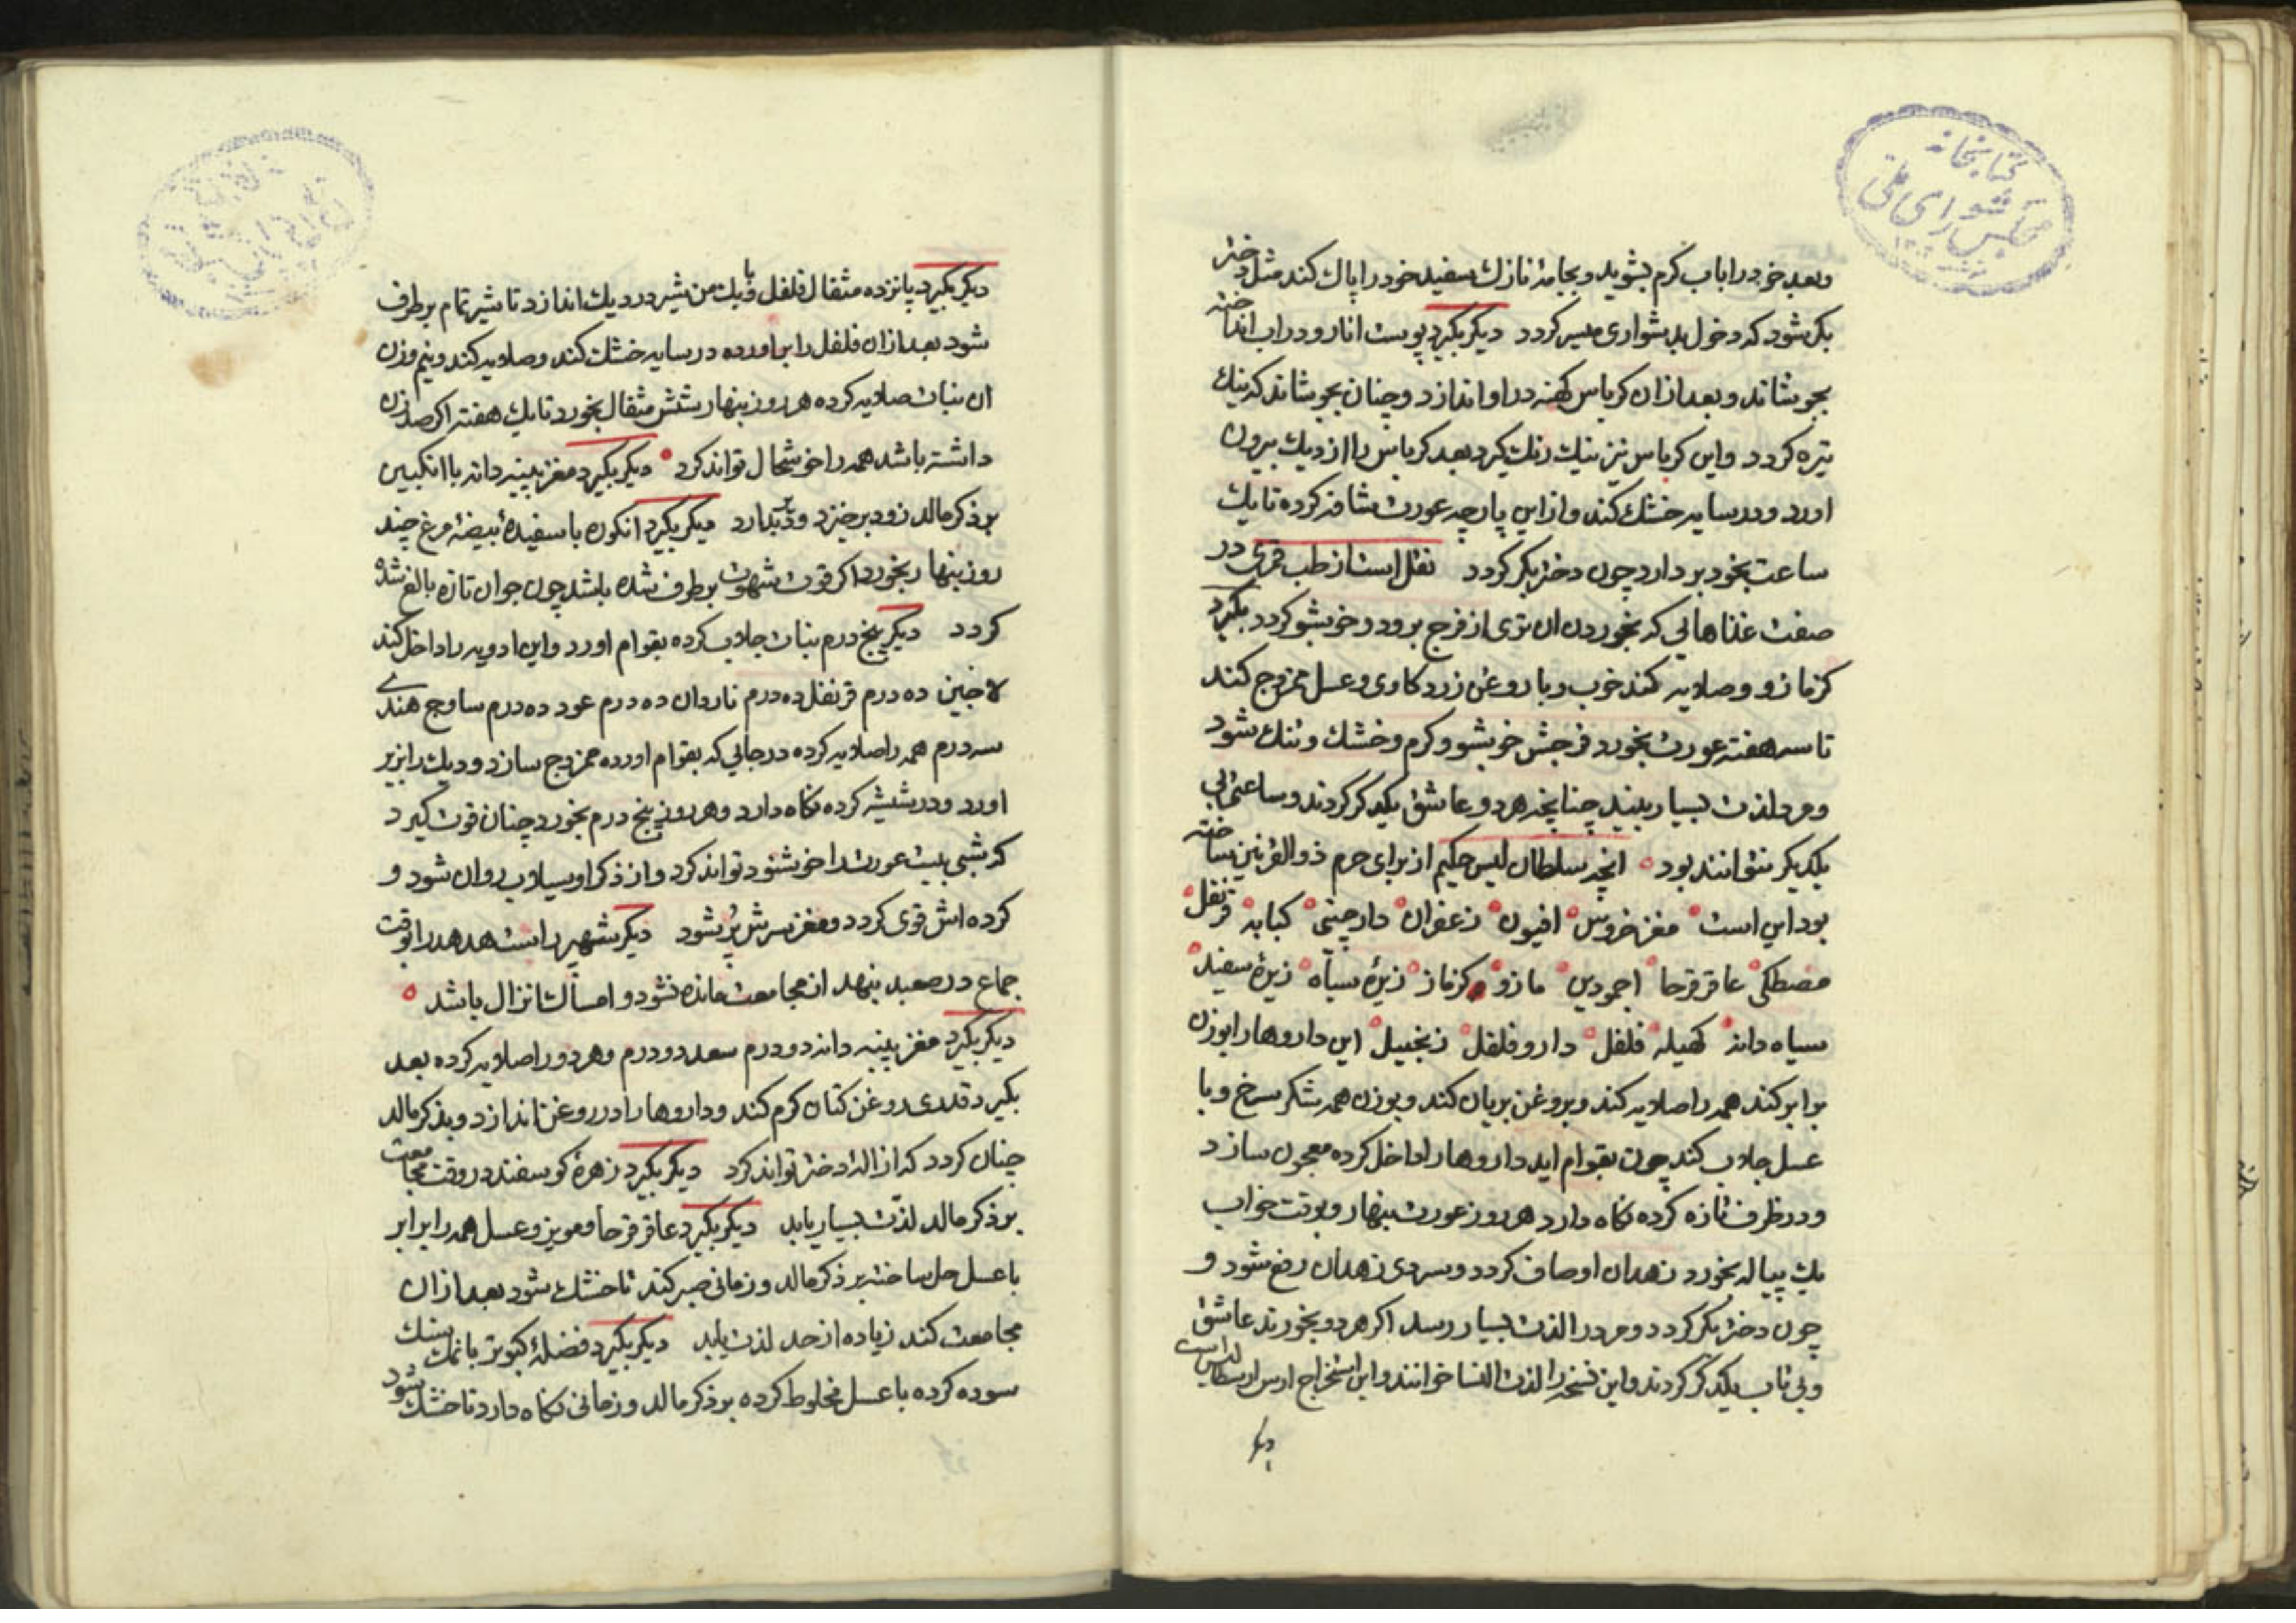 کتابخانه
مجلس شورای ملی
وبعد خود را باب کرم بشوید و بجامهٔ نازک سفید خود را پاک کند مثل دختر
بکر شود که دخول بدشواری میسر کردد دیکر بکیرد پوست انار و در اب انداخته
بجوشاند و بعد ازان کرباس کهنه در او اندازد و چنان بجوشاند که نیک
تیره کردد و این کرباس نیز نیک رنک کیرد بعد کرباس را از دیک بیرون
اورد و در سایه خشک کند و ازین پارچه عورت شافه کرده تا یک
ساعت بخود بردارد چون دختر بکر کردد نقل است از طب در
صفت غذاهایی که بخوردن ان تری از فرج برود و خوشبو کردد بکیرد
کزمازو و صلایه کند خوب و با روغن زرد کاوی و عسل ممزوج کند
تا سه هفته عورت بخورد فرجش خوشبو و کرم و خشک و تنک شود
و مرد لذت بسیار بیند چنانچه هر دو عاشق یکدکر کردند و ساعتی بی
یکدیکر نتوانند بود انچه سلطالیس حکیم از برای حرم ذوالقرنین ساخته
بود این است مغز خروس افیون زعفران دارچینی کبابه قرنفل
مصطکی عاقرقرحا اجمودین مازو کزماز زیرهٔ سیاه زیرهٔ سفید
سیاه دانه کهیله فلفل دارو فلفل زنجبیل این داروها را بوزن
برابر کند همه را صلایه کند و بروغن بریان کند و بوزن همه شکر سرخ و با
عسل جلاب کند چون بقوام اید داروها را داخل کرده معجون سازد
و در ظرف تازه کرده نکاه دارد هر روز عورت بنهار و بوقت خواب
یک پیاله بخورد زهدان او صاف کردد و سردی زهدان رفع شود و
چون دختر بکر کردد و مرد را لذت بسیار رسد اکر هر دو بخورند عاشق
و بی تاب یکدکر کردند و این نسخه را لذت النسا خوانند و این استخراج ارسطالیس است
دیکر
دیکر بکیرد پانزده مثقال فلفل و با یک من شیر در دیک اندازد تا شیر تمام بر طرف
شود بعد ازان فلفل را براورده در سایه خشک کند و صلایه کند و نیم وزن
ان نبات صلایه کرده هر روز بنهار شش مثقال بخورد تا یک هفته اکر صد زن
داشته باشد همه را خوشحال تواند کرد دیکر بکیرد مغز پنبه دانه با انکبین
بر ذکر مالد زود برخیزد و دیر بدارد دیکر بکیرد انکوزه با سفیدهٔ بیضهٔ مرغ چند
روز بنهار بخورد اکر قوت شهوت بر طرف شده باشد چون جوان تازه بالغ شده
کردد دیکر پنج درم نبات جلاب کرده بقوام اورد و این ادویه را داخل کند
ده درم قرنفل ده درم ناردان ده درم عود ده درم ساوج هندی
سه درم همه را صلایه کرده در جایی که بقوام اورده ممزوج سازد و دیک را بزیر
اورد و در شیشه کرده نکاه دارد و هر روز پنج درم بخورد چنان قوت کیرد
که شبی بیست عورت را خوشنود تواند کرد و از ذکر او سیلاب روان شود و
کرده اش قوی کردد و مغز سرش پر شود دیکر شهپر راست هدهد را بوقت
جماع در بنهد از مجامعت مانده نشود و امساک انزال باشد
دیکر بکیرد مغز پنبه دانه دو درم سعد دو درم و هر دو را صلایه کرده بعد
بکیرد قدری روغن کتان کرم کند و داروها را در روغن اندازد و بذکر مالد
چنان کردد که ازاله دختر تواند کرد دیکر بکیرد زهرهٔ کوسفند در وقت مجامعت
بر ذکر مالد لذت بسیار یابد دیکر بکیرد عاقرقرحا و مویز و عسل همه را برابر
با عسل حل ساخته بر ذکر مالد و زمانی صبر کند تا خشک شود بعد ازان
مجامعت کند زیاده از حد لذت یابد دیکر بکیرد فضلهٔ کبوتر با نمک سنک
سوده کرده با عسل مخلوط کرده بر ذکر مالد و زمانی نکاه دارد تا خشک شود